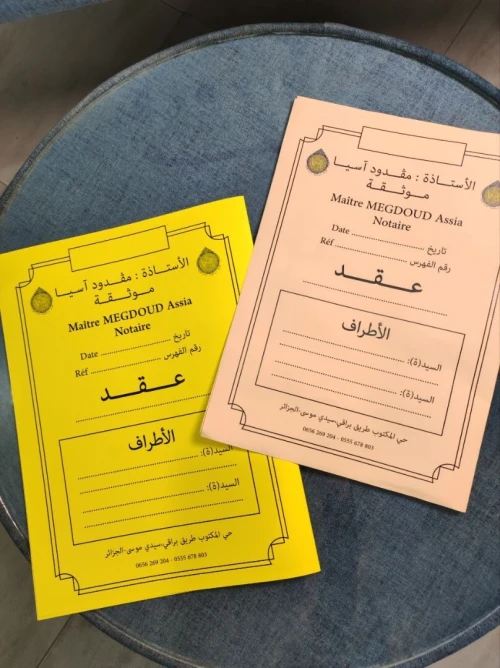 الأستاذة : مڤدود آسيا
موثقة
Maître MEGDOUD Assia
Notaire
Date ........................ تاريخ
Réf ........................ رقم الفهرس
عـقـد
الأطراف
السيد(ة):
السيد(ة):
حي المكتوب طريق براقي،سيدي موسى-الجزائر
0656 269 204 - 0555 678 803
الأستاذة : مڤدود آسيا
موثقة
Maître MEGDOUD Assia
Notaire
Date ........................ تاريخ
Réf ........................ رقم الفهرس
عـقـد
الأطراف
السيد(ة):
السيد(ة):
حي المكتوب طريق براقي،سيدي موسى-الجزائر
0656 269 204 - 0555 678 803